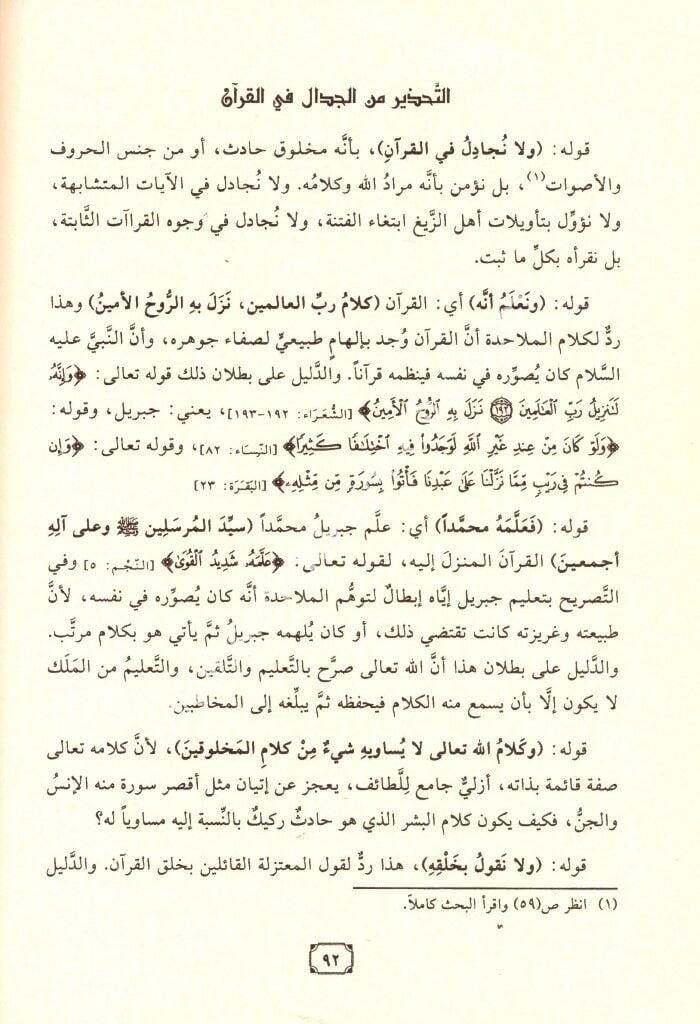 التَّحذير من الجدال في القرآن
قوله: (ولا نُجادِلُ في القرآنِ)، بأنَّه مخلوق حادث، أو من جنس الحروف
والأصوات(١)، بل نؤمن بأنَّه مرادُ الله وكلامُه. ولا نُجادل في الآيات المتشابهة،
ولا نؤوِّل بتأويلات أهل الزَّيغ ابتغاء الفتنة، ولا نُجادل في وجوه القراآت الثَّابتة،
بل نقرأه بكلِّ ما ثبت.
قوله: (ونَعْلَمُ أنَّه) أي: القرآن (كلامُ ربِّ العالمين، نَزَلَ به الرُّوحُ الأمينُ) وهذا
ردٌّ لكلام الملاحدة أنَّ القرآن وُجد بإلهامٍ طبيعيٍّ لصفاء جوهره، وأنَّ النَّبيَّ عليه
السَّلام كان يُصوِّره في نفسه فينظمه قرآناً. والدَّليل على بطلان ذلك قوله تعالى: ﴿وَإِنَّهُۥ
لَتَنزِيلُ رَبِّ ٱلْعَٰلَمِينَ ۝١٩٢ نَزَلَ بِهِ ٱلرُّوحُ ٱلْأَمِينُ﴾ [الشُّعَرَاء: ١٩٢-١٩٣]، يعني: جبريل، وقوله:
﴿وَلَوْ كَانَ مِنْ عِندِ غَيْرِ ٱللَّهِ لَوَجَدُوا۟ فِيهِ ٱخْتِلَٰفًا كَثِيرًا﴾ [النِّسَاء: ٨٢]، وقوله تعالى: ﴿وَإِن
كُنتُمْ فِى رَيْبٍ مِّمَّا نَزَّلْنَا عَلَىٰ عَبْدِنَا فَأْتُوا۟ بِسُورَةٍ مِّن مِّثْلِهِۦ﴾ [البَقَرَة: ٢٣]
قوله: (فَعَلَّمَهُ محمَّداً) أي: علَّم جبريلُ محمَّداً (سيِّدَ المُرسَلِين ﷺ وعلى آلِهِ
أجمعينَ) القرآنَ المنزلَ إليه، لقوله تعالى: ﴿عَلَّمَهُۥ شَدِيدُ ٱلْقُوَىٰ﴾ [النَّجْم: ٥] وفي
التَّصريح بتعليم جبريل إيَّاه إبطالٌ لتوهُّم الملاحدة أنَّه كان يُصوِّره في نفسه، لأنَّ
طبيعته وغريزته كانت تقتضي ذلك، أو كان يُلهمه جبريلُ ثمَّ يأتي هو بكلام مرتَّب.
والدَّليل على بطلان هذا أنَّ الله تعالى صرَّح بالتَّعليم والتَّلقين، والتَّعليمُ من المَلَك
لا يكون إلَّا بأن يسمع منه الكلام فيحفظه ثمَّ يبلِّغه إلى المخاطبين.
قوله: (وكَلامُ الله تعالى لا يُساويهِ شيءٌ مِنْ كلامِ المَخلوقينَ)، لأنَّ كلامه تعالى
صفة قائمة بذاته، أزليٌّ جامع لِلَّطائف، يعجز عن إتيان مثل أقصر سورة منه الإنسُ
والجنُّ، فكيف يكون كلام البشر الذي هو حادثٌ ركيكٌ بالنِّسبة إليه مساوياً له؟
قوله: (ولا نَقولُ بخَلْقِهِ)، هذا ردٌّ لقول المعتزلة القائلين بخلق القرآن. والدَّليل
(١) انظر ص(٥٩) واقرأ البحث كاملاً.
٩٢